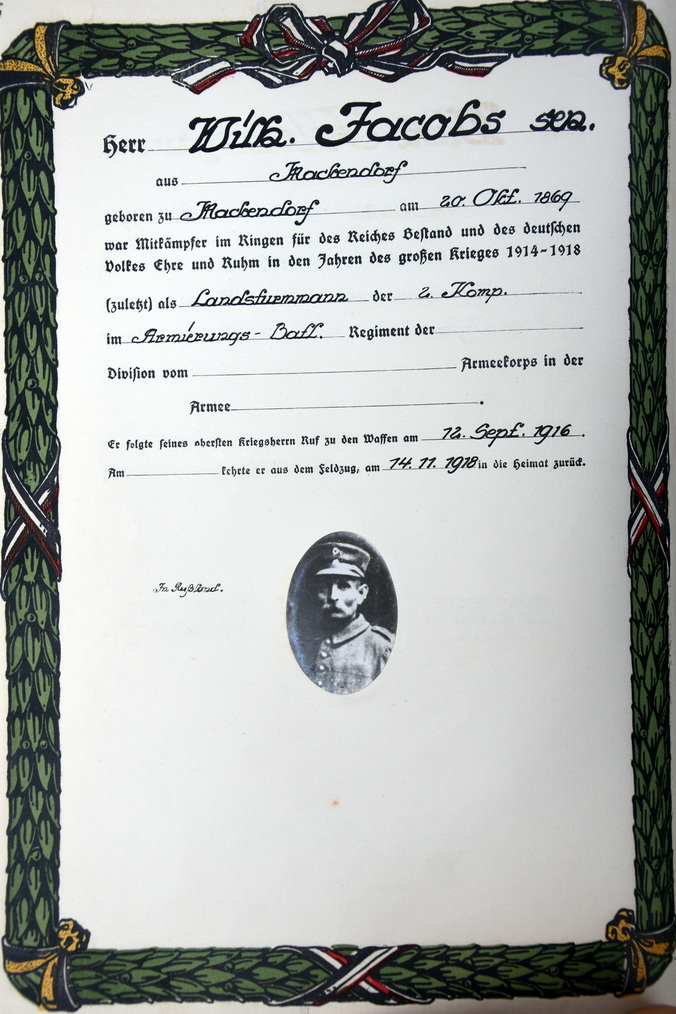 Herr Wilh. Jacobs sen.
aus Mackendorf
geboren zu Mackendorf am 20. Okt. 1869
war Mitkämpfer im Ringen für des Reiches Bestand und des deutschen
Volkes Ehre und Ruhm in den Jahren des großen Krieges 1914-1918
(zuletzt) als Landsturmmann der 2. Komp.
im Armierungs-Batl. Regiment der
Division vom Armeekorps in der
Armee .
Er folgte seines obersten Kriegsherrn Ruf zu den Waffen am 12. Sept. 1916.
Am kehrte er aus dem Feldzug, am 14. 11. 1918 in die Heimat zurück.
In Rußland.